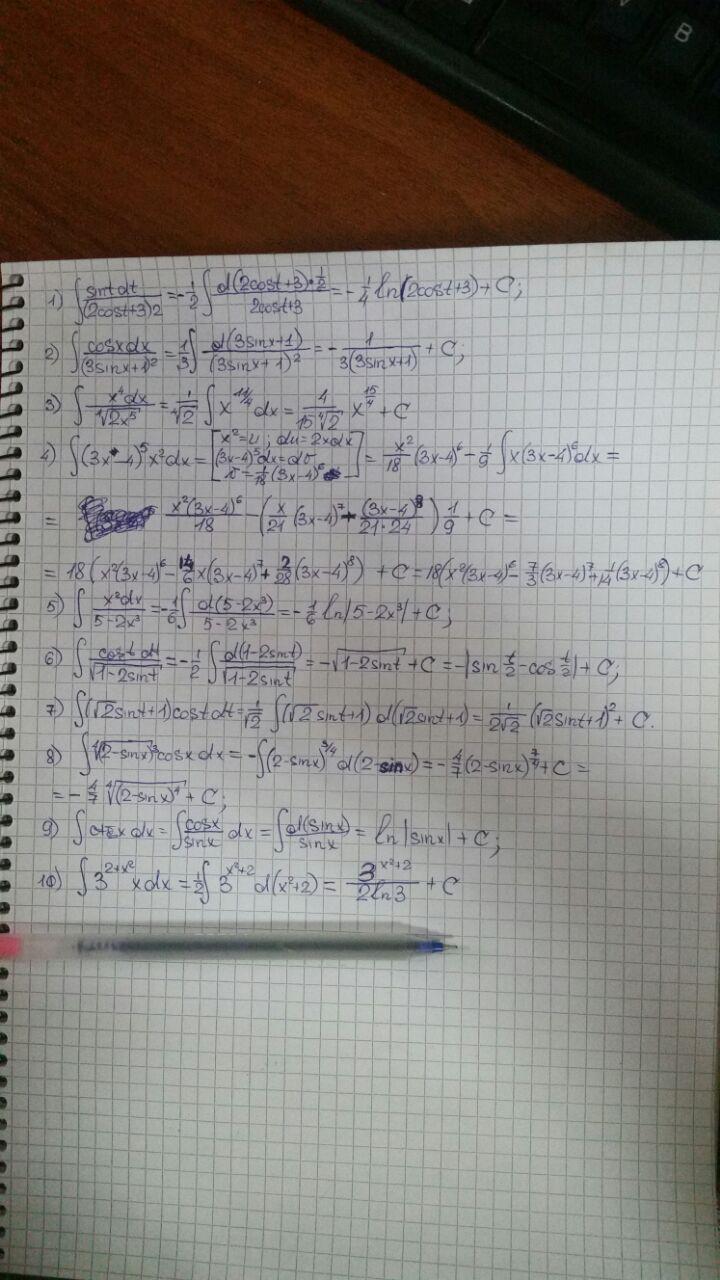 B
1) ∫ sint dt/(2cost+3)2 = -1/2 ∫ d(2cost+3)·1/2 / 2cost+3 = -1/4 ln(2cost+3)+C;
2) ∫ cosxdx/(3sinx+1)² = 1/3 ∫ d(3sinx+1)/(3sinx+1)² = -1/3(3sinx+1) + C;
3) ∫ x⁴dx/⁴√2x⁵ = 1/⁴√2 ∫ x^11/4 dx = 4/15⁴√2 x^15/4 + C
4) ∫(3x-4)⁵x²dx = [x²=u; du=2xdx (3x-4)⁵dx=dv v=1/18(3x-4)⁶] = x²/18 (3x-4)⁶ - 1/9 ∫x(3x-4)⁶dx =
= x²(3x-4)⁶/18 - (x/21 (3x-4)⁷ - (3x-4)⁸/21·24) 1/9 + C =
= 18(x²(3x-4)⁶ - 14/6 x(3x-4)⁷ + 2/28 (3x-4)⁸) + C = 18(x²(3x-4)⁶ - 7/3 (3x-4)⁷ + 1/14 (3x-4)⁸) + C
5) ∫ x²dx/5-2x³ = -1/6 ∫ d(5-2x³)/5-2x³ = -1/6 ln|5-2x³| + C;
6) ∫ cost dt/√1-2sint = -1/2 ∫ d(1-2sint)/√1-2sint = -√1-2sint + C = -|sin t/2 - cos t/2| + C;
7) ∫(√2sint+1)costdt = 1/√2 ∫(√2sint+1)d(√2sint+1) = 1/2√2 (√2sint+1)² + C.
8) ∫ ⁴√(2-sinx)³cosxdx = -∫(2-sinx)^3/4 d(2-sinx) = -4/7 (2-sinx)^7/4 + C =
= -4/7 ⁴√(2-sinx)⁷ + C;
9) ∫ctgxdx = ∫ cosx/sinx dx = ∫ d(sinx)/sinx = ln|sinx| + C;
10) ∫3^2+x² xdx = 1/2 ∫3^x²+2 d(x²+2) = 3^x²+2/2ln3 + C